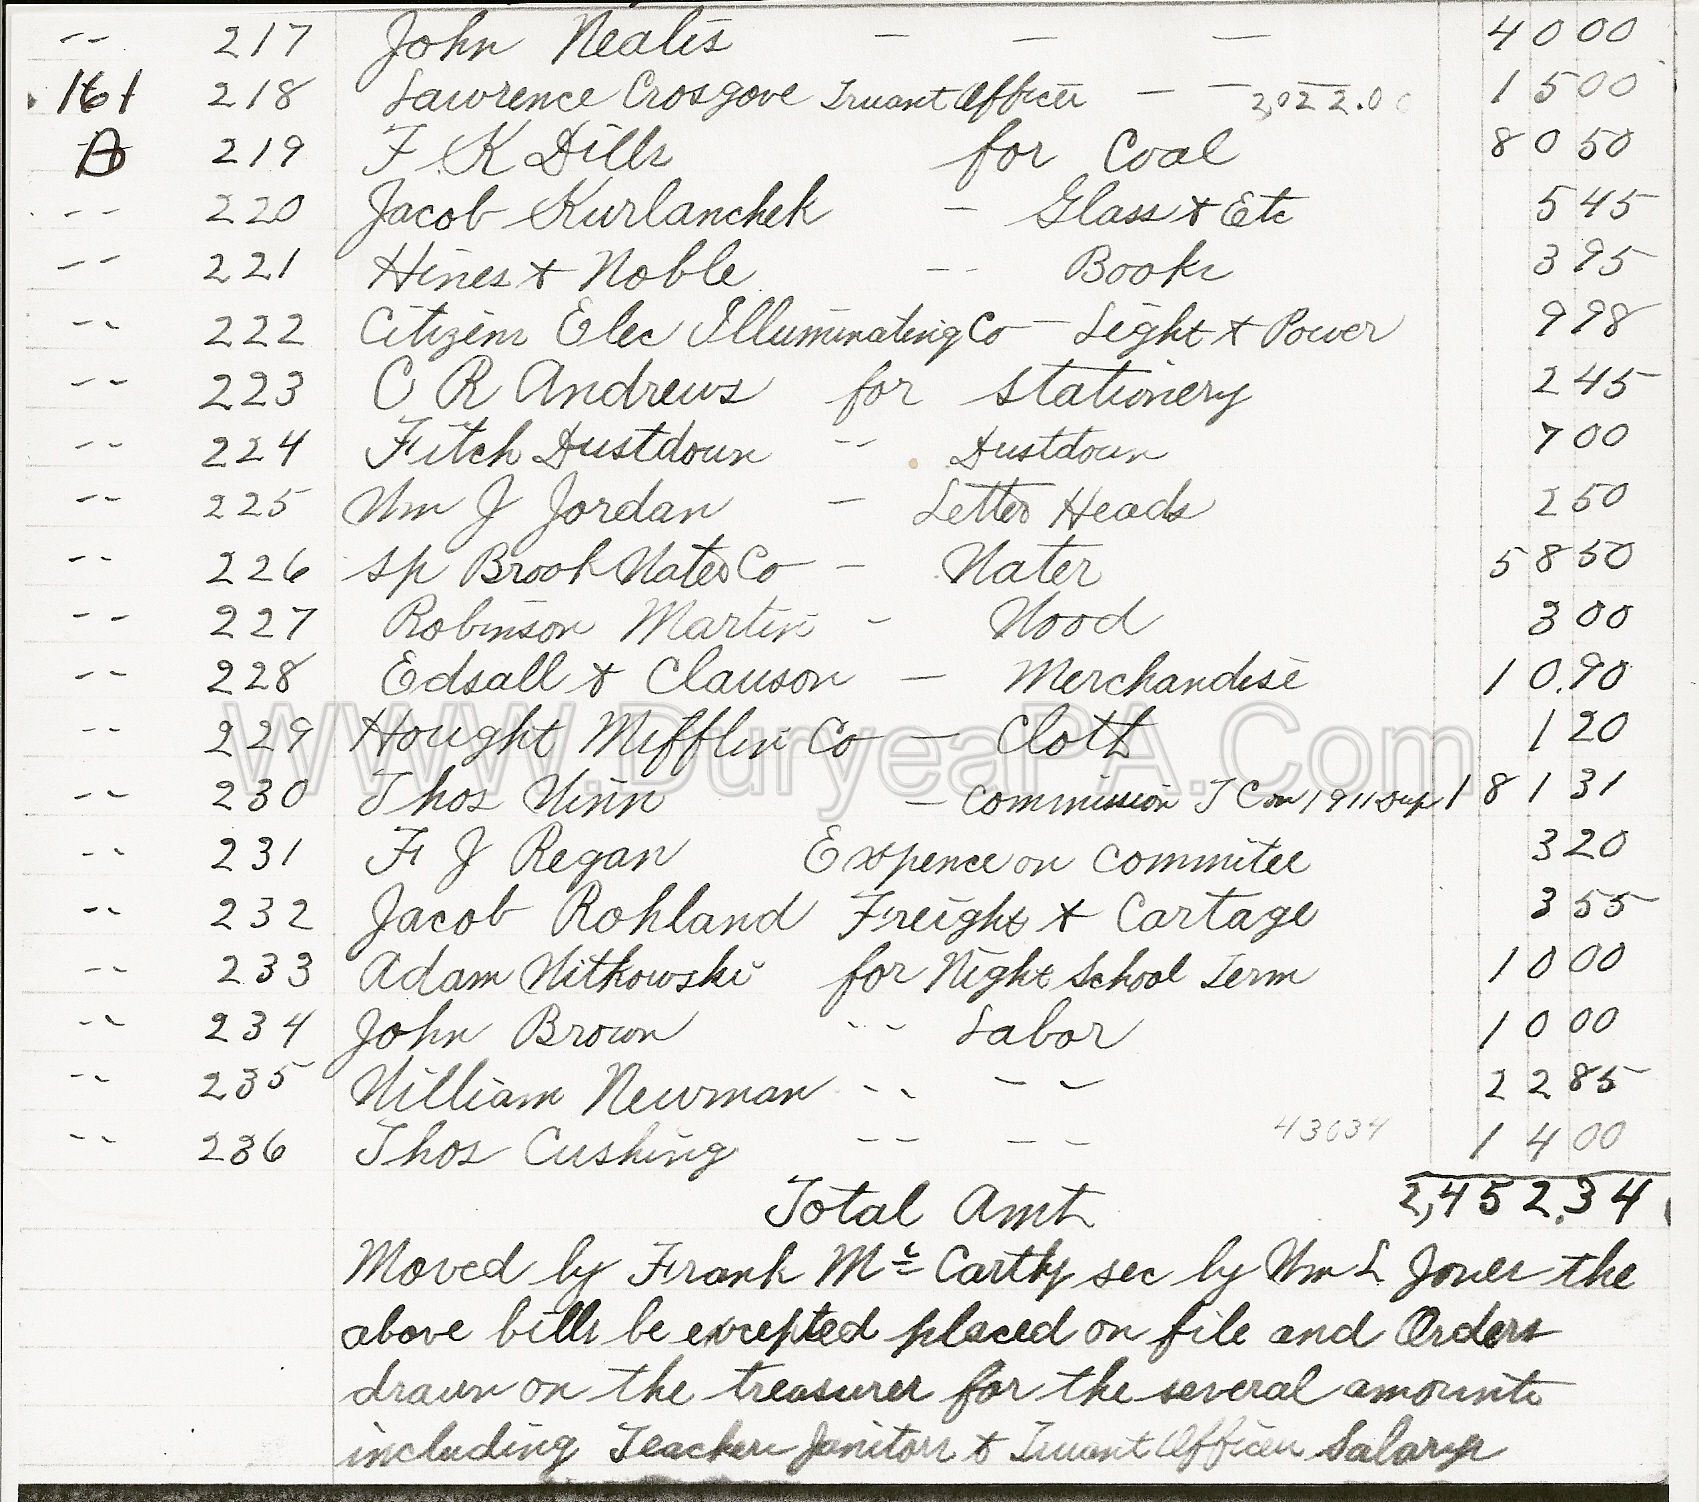 -- 217 John Nealis — — — 40 00
161 218 Lawrence Crosgove Truant Officer — — 2,022.00 15 00
219 F K Dills for Coal 80 50
-- 220 Jacob Kurlanchek - Glass & Etc 5 45
-- 221 Hines & Noble -- Books 3 95
-- 222 Citizens Elec Illuminating Co - Light & Power 9 98
-- 223 C R Andrews for Stationery 2 45
-- 224 Fitch Dustdown -- Dustdown 7 00
-- 225 Wm J Jordan - Letter Heads 2 50
-- 226 Sp Brook Water Co - Water 58 50
-- 227 Robinson Martin - Wood 3 00
-- 228 Edsall & Clauson - Merchandise 10.90
-- 229 Hought Mifflin Co - Cloth 1 20
-- 230 Thos Winn - Commission T C on 1911 Dup 181 31
-- 231 F J Regan Expence on Commitee 3 20
-- 232 Jacob Rohland Freight & Cartage 3 55
-- 233 Adam Witkowski for Night School Term 10 00
-- 234 John Brown -- Labor 10 00
-- 235 William Newman -- -- 22 85
-- 236 Thos Cushing -- -- 43034 14 00
Total Amt 2,452.34
Moved by Frank Mc Carthy sec by Wm L Jones the
above bills be excepted placed on file and Orders
drawn on the treasurer for the several amounts
including Teachers Janitors & Truant Officers Salarys
WWW.DuryeaPA.Com